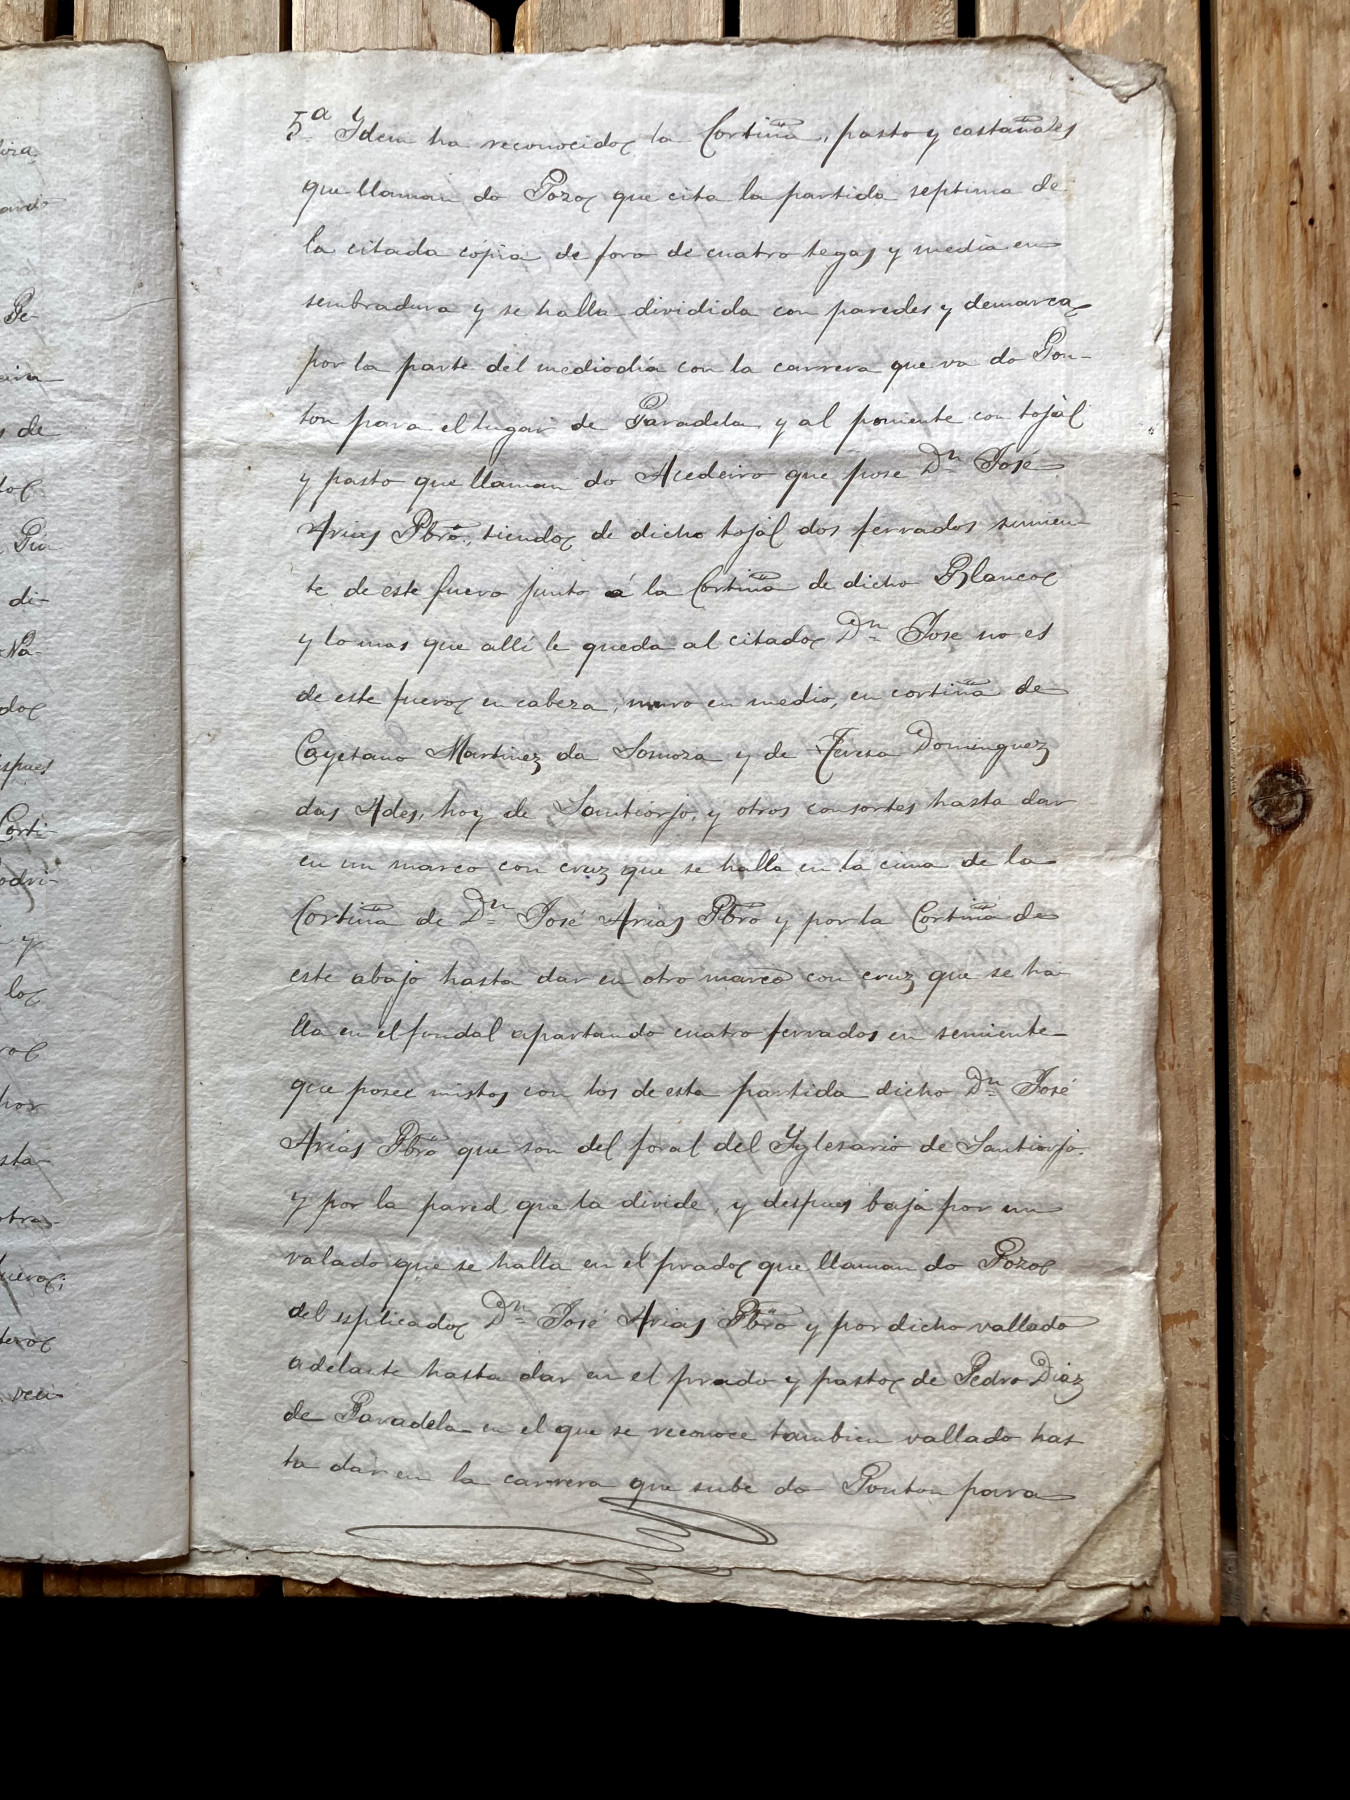 5.ª Ydem ha reconocido la Cortiña, pasto y castañales
que llaman do Pozo que cita la partida septima de
la citada cópia de foro de cuatro tegas y media en
sembradura y se halla dividida con paredes y demarca
por la parte del mediodia con la carrera que va do Pon-
ton para el lugar de Paradela y al poniente con tojál
y pasto que llaman do Acedeiro que pose Dn José
Arias Pbro, siendo de dicho tojál dos ferrados simien-
te de este fuero junto á la Cortiña de dicho Blanco
y lo mas que allí le queda al citado Dn Jose no es
de este fuero en cabeza, muro en medio, en cortiña de
Cayetano Martinez da Somoza y de Teresa Dominguez
das Ades, hoy de Santiorjo, y otros consortes hasta dar
en un marco con cruz que se halla en la cima de la
Cortiña de Dn José Arias Pbro y por la Cortiña de
este abajo hasta dar en otro marco con cruz que se ha
lla en el fondal apartando cuatro ferrados en semiente
que posee mistos con los de esta partida dicho Dn José
Arias Pbro que son del foral del Yglesario de Santiorjo.
y por la pared que la divide, y despues baja por un
valado que se halla en el prado que llaman do Pozo
del esplicado Dn José Arias Pbro y por dicho vallado
adelante hasta dar en el prado y pasto de Pedro Diaz
de Paradela en el que se reconoce tambien vallado has
ta dar en la carrera que sube do Ponton para